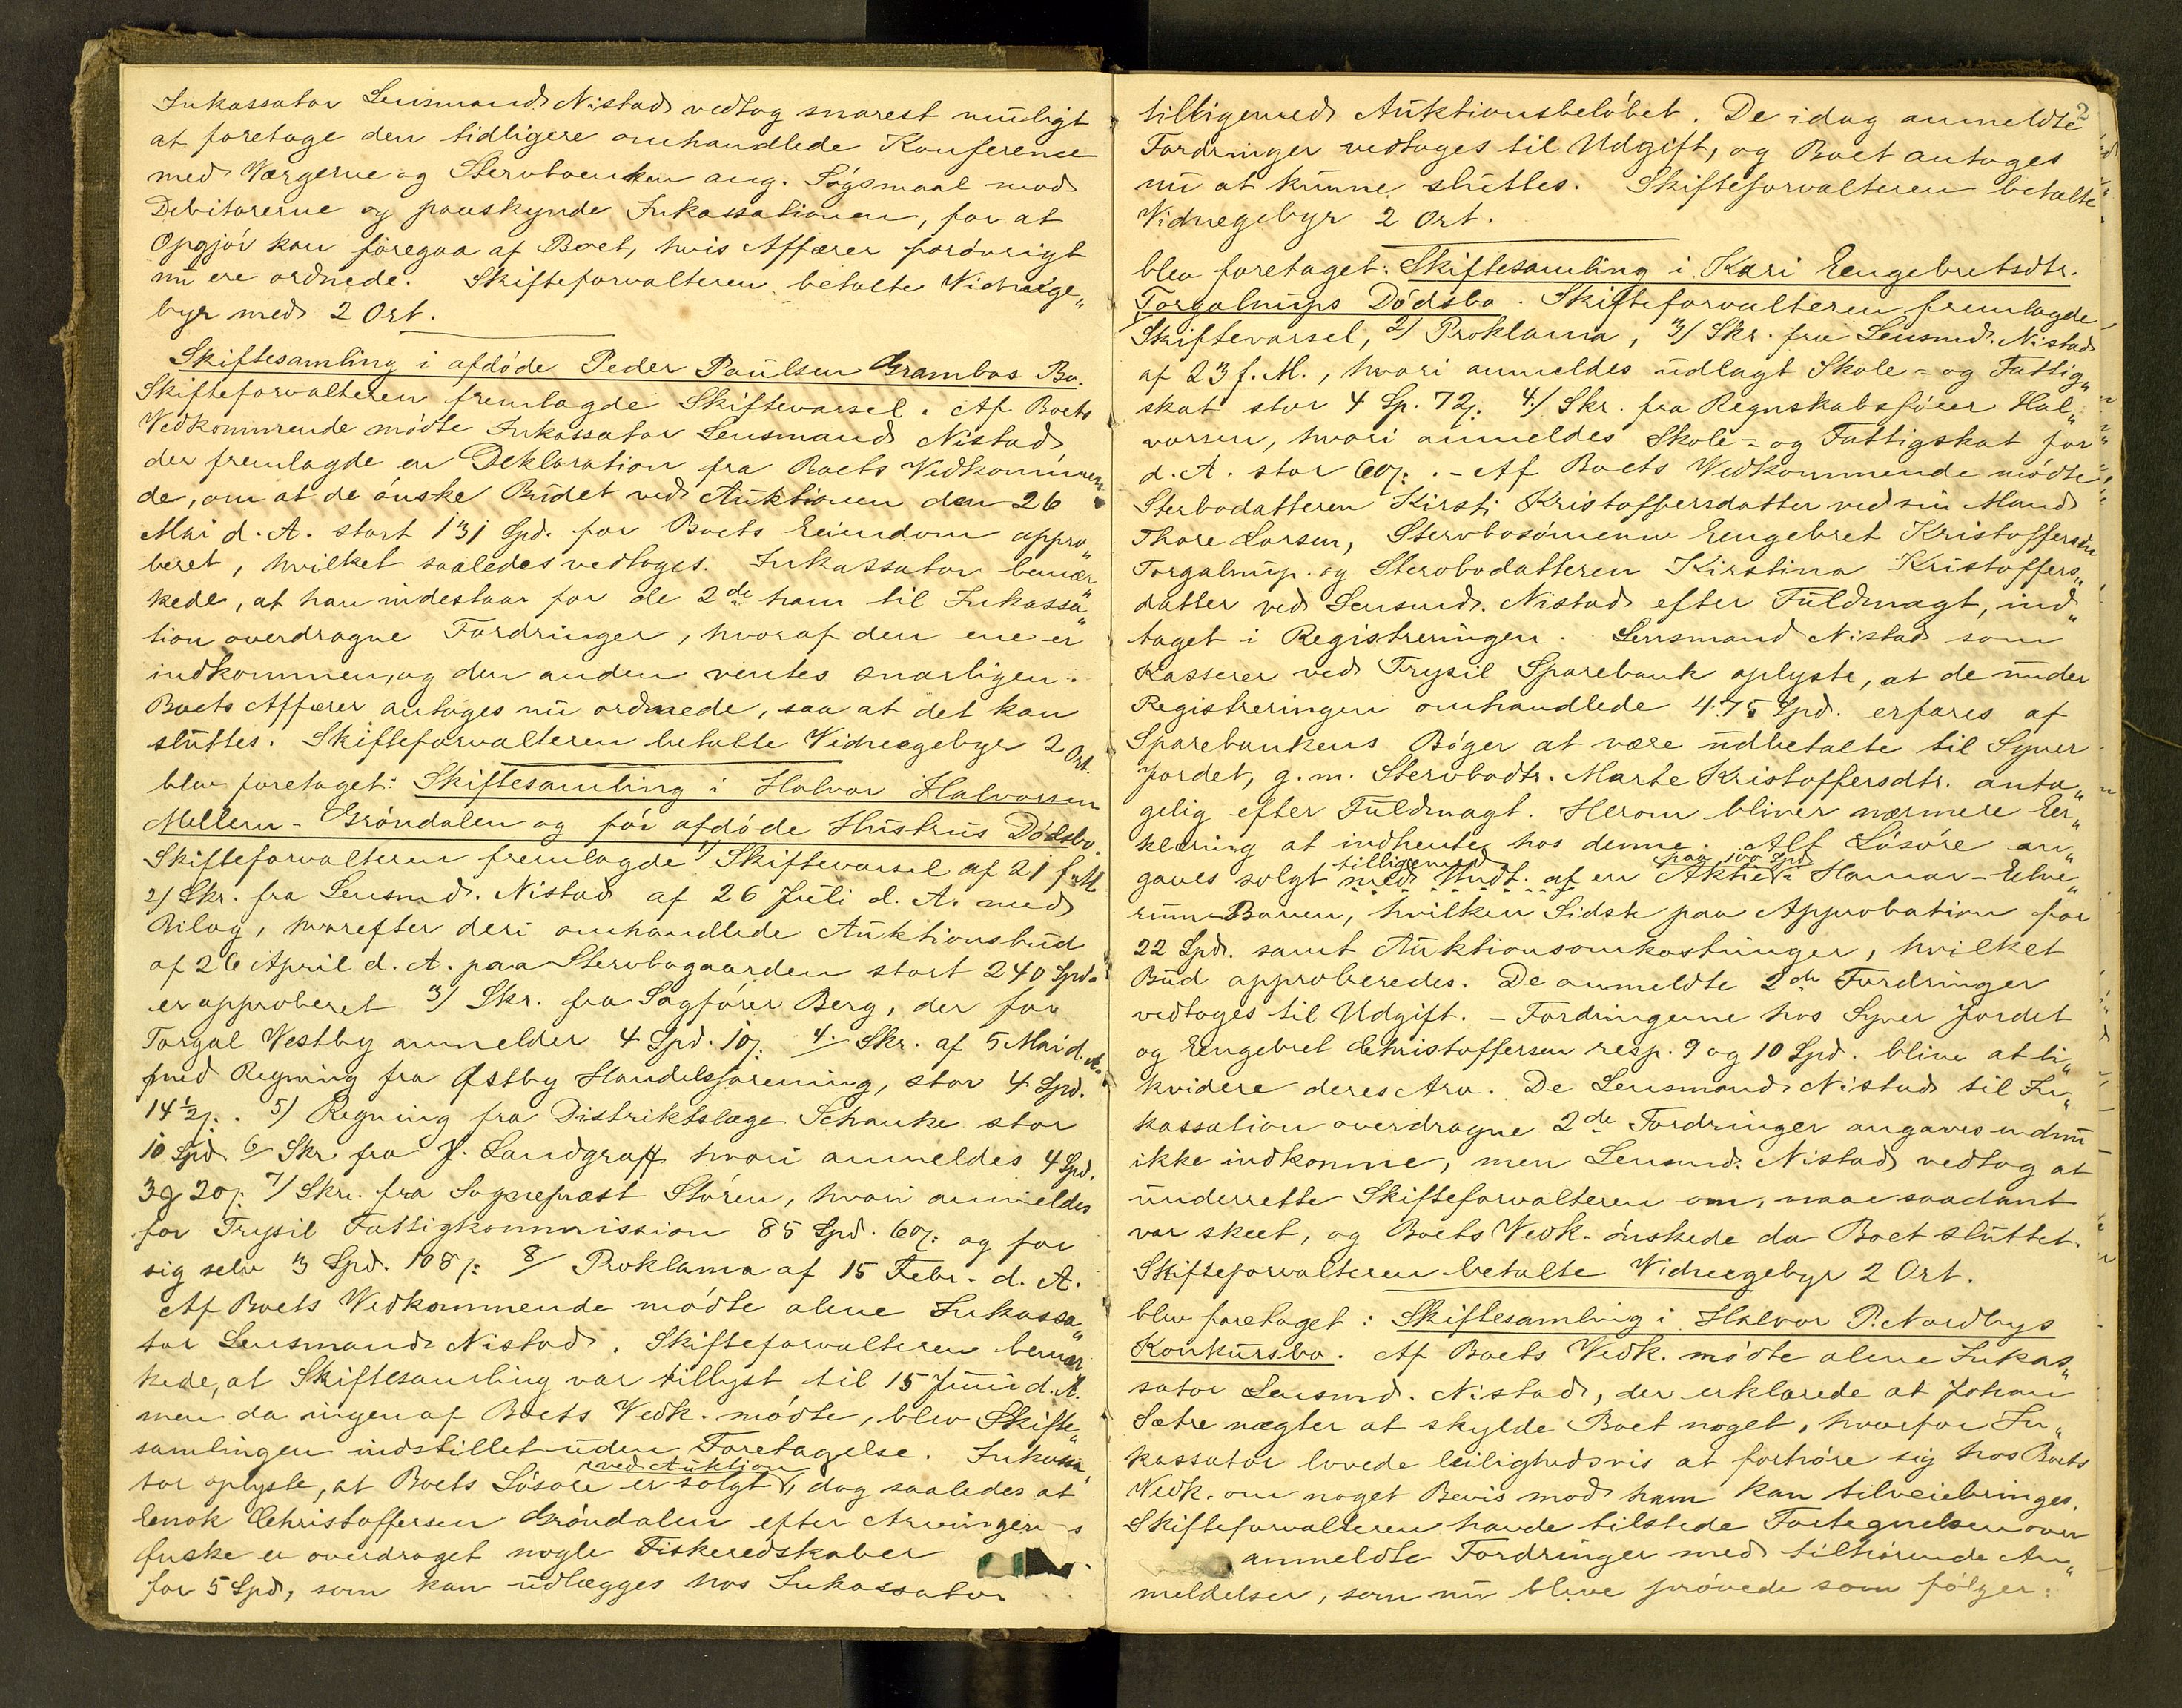 Inkassator Lensmand Nistad vedtog snarest muligt
at foretage den tidligere omhandlede Konference
med Værgerne og Stervboenken ang. Søgsmaal mod
Debitorerne og paaskynde Inkassationen, for at
Opgjør kan foregaa af Boet, hvis Affærer forøvrigt
nu ere ordnede. Skifteforvalteren betalte Vidnege„
byr med 2 Ort.
Skiftesamling i afdøde Peder Paulsen Grambos Bo.
Skifteforvalteren fremlagde Skiftevarsel. Af Boets
Vedkommende mødte Inkassator Lensmand Nistad,
der fremlagde en Deklaration fra Boets Vedkommen
de, om at de ønske Budet ved Auktionen den 26
Mai d. A. stort 131 Spd. for Boets Eiendom appro„
beret, hvilket saaledes vedtoges. Inkassator bemær
kede, at han indestaar for de 2de ham til Inkassa„
tion overdragne Fordringer, hvoraf den ene er
indkommen, og den anden ventes snarligen.
Boets Affærer antoges nu ordnede, saa at det kan
sluttes. Skifteforvalteren betalte Vidnegebyr 2 Ort.
blev foretaget: Skiftesamling i Halvor Halvorsen
Mellem-Grøndalen og før afdøde Hustrus Dødsbo.
Skifteforvalteren fremlagde 1/ Skiftevarsel af 21 f. M.
2/ Skr. fra Lensmd. Nistad af 26 Juli d. A. med
Bilag, hvorefter deri omhandlede Auktionsbud
af 26 April d. A. paa Stervbogaarden stort 240 Spd.
er approberet 3/ Skr. fra Sagfører Berg, der for
Torgal Vestby anmelder 4 Spd. 10ẞ: 4/ Skr. af 5 Mai d. A.
med Regning fra Østby Handelsforening, stor 4 Spd.
14½ẞ:. 5/ Regning fra Distriktslæge Schanke stor
10 Spd. 6/ Skr. fra J. Landgraff hvori anmeldes 4 Spd.
3 Ort 20ẞ: 7/ Skr. fra Sognepræst Støren, hvori anmeldes
for Trysil Fattigkommission 85 Spd. 60ẞ: og for
sig selv 3 Spd. 108ẞ: 8/ Proklama af 15 Febr. d. A.
Af Boets Vedkommende mødte alene Inkassa„
tor Lensmand Nistad. Skifteforvalteren bemær„
kede, at Skiftesamling var tillyst til 15 Juni d. A.
men da ingen af Boets Vedk. mødte, blev Skifte„
samlingen indstillet uden Foretagelse. Inkassa„
ved Auktion
tor oplyste, at Boets Løsøre er solgt, dog saaledes at
Enok Christoffersen Grøndalen efter Arvingers
Ønske er overdraget nogle Fiskeredskaber
for 5 Spd, som kan udlægges hos Inkassator
2
tilligemed Auktionsbeløbet. De idag anmeldte
Fordringer vedtoges til Udgift, og Boet antoges
nu at kunne sluttes. Skifteforvalteren betalte
Vidnegebyr 2 Ort.
blev foretaget: Skiftesamling i Kari Engebretsdtr.
Torgalmyps Dødsbo. Skifteforvalteren fremlagde
1/ Skiftevarsel, 2/ Proklama, 3/ Skr. fra Lensmd. Nistad
af 23 f. M., hvori anmeldes udlagt Skole- og Fattig„
skat stor 4 Sp. 72ẞ: 4/ Skr. fra Regnskabsfører Hal„
vorsen, hvori anmeldes Skole- og Fattigskat for
d. A. stor 60ẞ:. - Af Boets Vedkommende mødte
Sterbodatteren Kirsti Kristoffersdatter ved sin Mand
Thore Larsen, Stervbosønnen Engebret Kristoffersen
Torgalmyp. og Stervbodatteren Kirstina Kristoffers„
datter ved Lensmd. Nistad efter Fuldmagt, ind„
taget i Registreringen. Lensmand Nistad som
Kasserer ved Trysil Sparebank oplyste, at de under
Registreringen omhandlede 475 Spd. erfares af
Sparebankens Bøger at være udbetalte til Syver
Jordet, g. m. Stervbodtr. Marte Kristoffersdtr. anta„
gelig efter Fuldmagt. Herom bliver nærmere Er„
klæring at indhente hos denne. Alt Løsøre an„
tilligemed paa 100 Spd
gaves solgt med Undt. af en Aktie i Hamar-Elve„
rum-Banen, hvilken Sidste paa Approbation for
22 Spd. samt Auktionsomkostninger, hvilket
Bud approberedes. De anmeldte 2de Fordringer
vedtoges til Udgift. - Fordringerne hos Syver Jordet
og Engebret Christoffersen resp. 9 og 10 Spd. blive at li„
kvidere deres Arv. De Lensmand Nistad til In„
kassation overdragne 2de Fordringer angaves endnu
ikke indkomne, men Lensmd. Nistad vedtog at
underrette Skifteforvalteren om, naar saadant
var skeet, og Boets Vedk. ønskede da Boet sluttet.
Skifteforvalteren betalte Vidnegebyr 2 Ort.
blev foretaget: Skiftesamling i Halvor P. Nordbys
Konkursbo. Af Boets Vedk. mødte alene Inkas„
sator Lensmd. Nistad, der erklærede at Johan
Sætre nægter at skylde Boet noget, hvorfor In„
kassator lovede leilighedsvis at forhøre sig hos Boets
Vedk. om noget Bevis mod ham kan tilveiebringes.
Skifteforvalteren havde tilstede Fortegnelsen over
anmeldte Fordringer med tilhørende An„
meldelser, som nu bleve prøvede som følger: